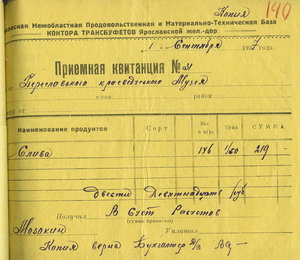 Копия 140
Межобластная Продовольственная и Материально-Техническая База
КОНТОРА ТРАНСБУФЕТОВ Ярославской жел.-дор.
1 Сентября 7 г.
Приемная квитанция № 31
Переславского краеведческого Музея
село район
от
Наименование продуктов Сорт Вес Цена СУММА
Слива 146 1/50 219 -
двести девятнадцать руб
В счет расчетов
Получил Уплатил
(сумма прописью)
Копия верна Бухгалтер